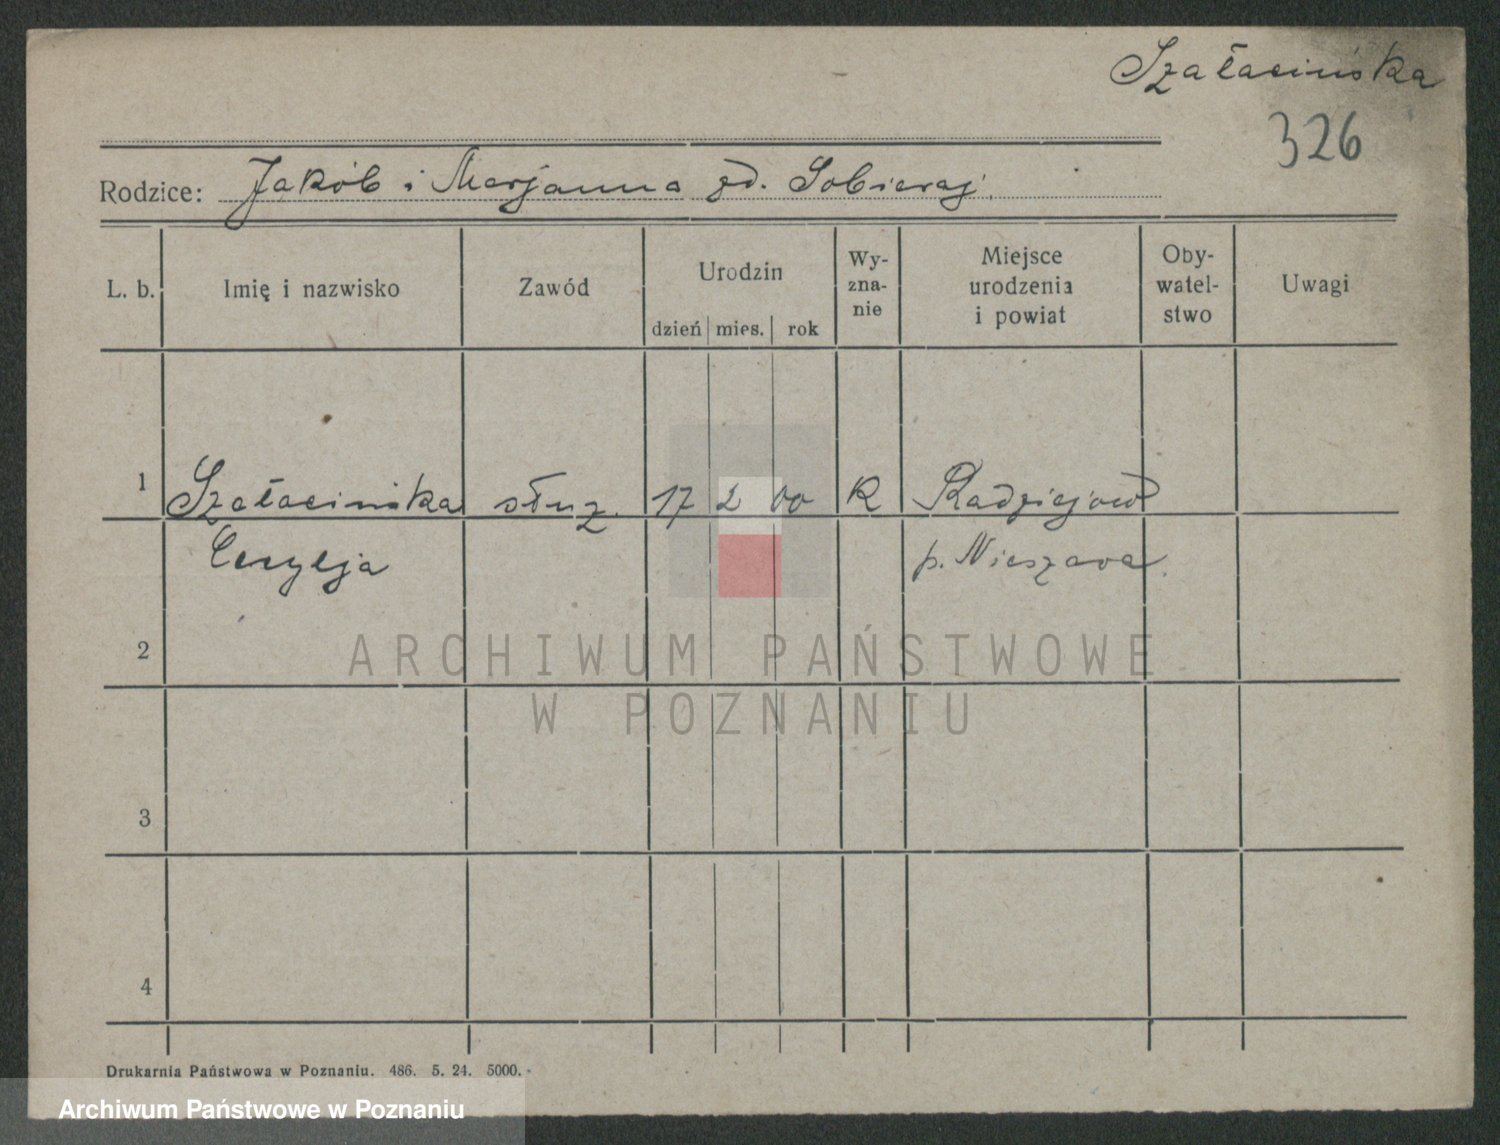 Szałacińska
326
Rodzice: Jakób i Marjanna zd. Sobieraj.
L. b. Imię i nazwisko Zawód Urodzin dzień mies. rok Wy-zna-nie Miejsce urodzenia i powiat Oby-watel-stwo Uwagi
1 Szałacińska służ. 17 2 00 R Radziejów
Cecylja p. Nieszawa.
2
ARCHIWUM PAŃSTWOWE
W POZNANIU
3
4
Drukarnia Państwowa w Poznaniu. 486. 5. 24. 5000.
Archiwum Państwowe w Poznaniu